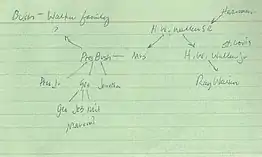 Bush - Walker family
?
H. W. Walker SR
Pres Bush — Mrs
H. W. Walker Jr
St. Louis
Pres Jr. Geo Jonathan
Ray Walker
Geo Jeb Neil
Marvin